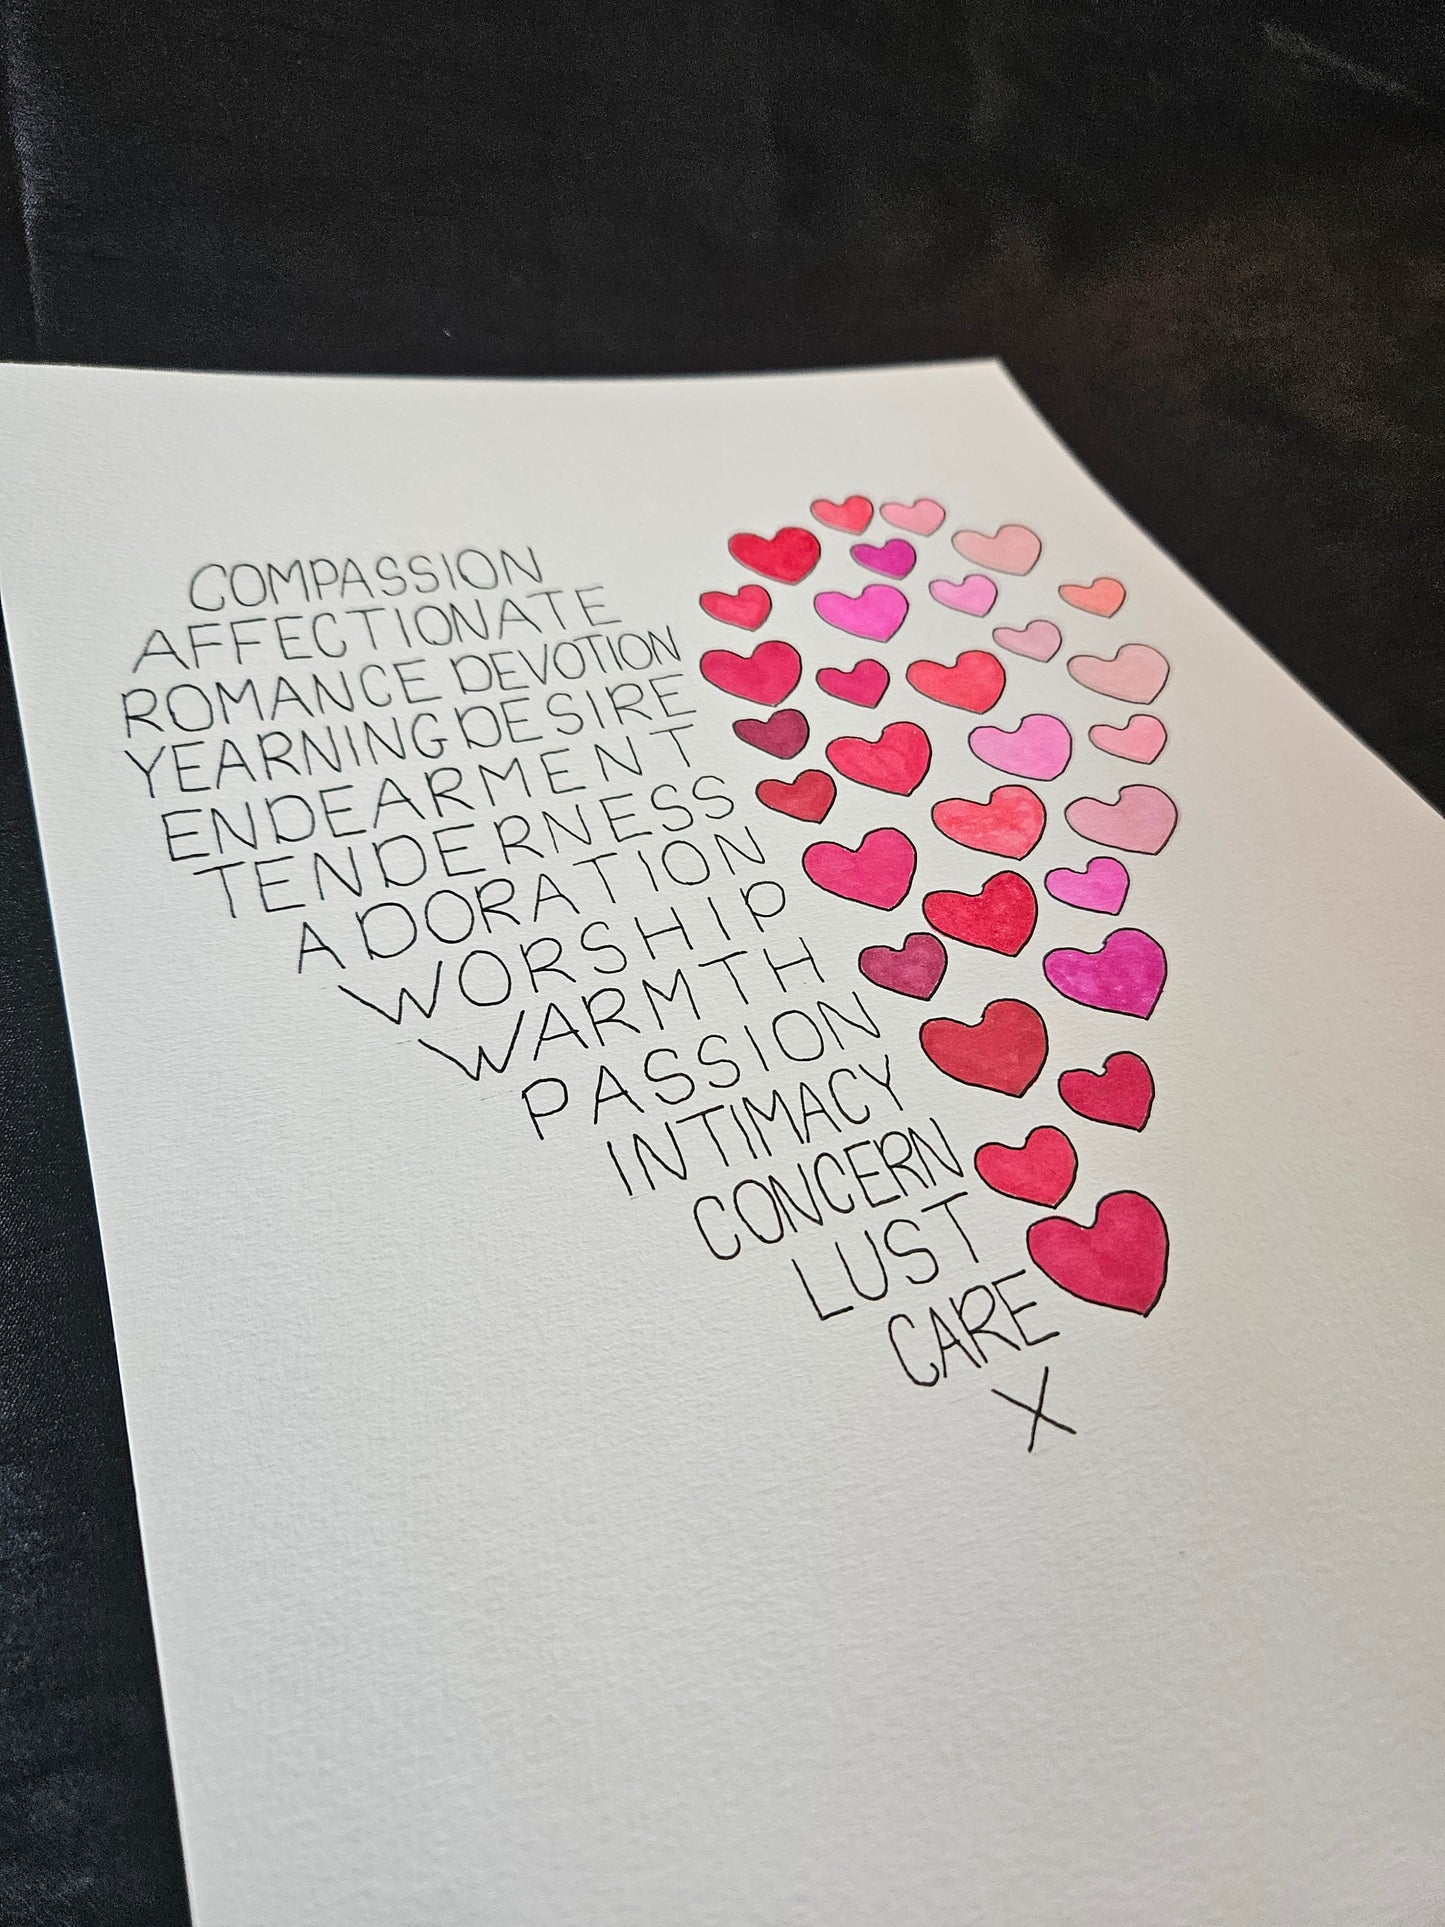 COMPASSION
AFFECTIONATE
ROMANCE DEVOTION
YEARNING DESIRE
ENDEARMENT
TENDERNESS
ADORATION
WORSHIP
WARMTH
PASSION
INTIMACY
CONCERN
LUST
CARE
X